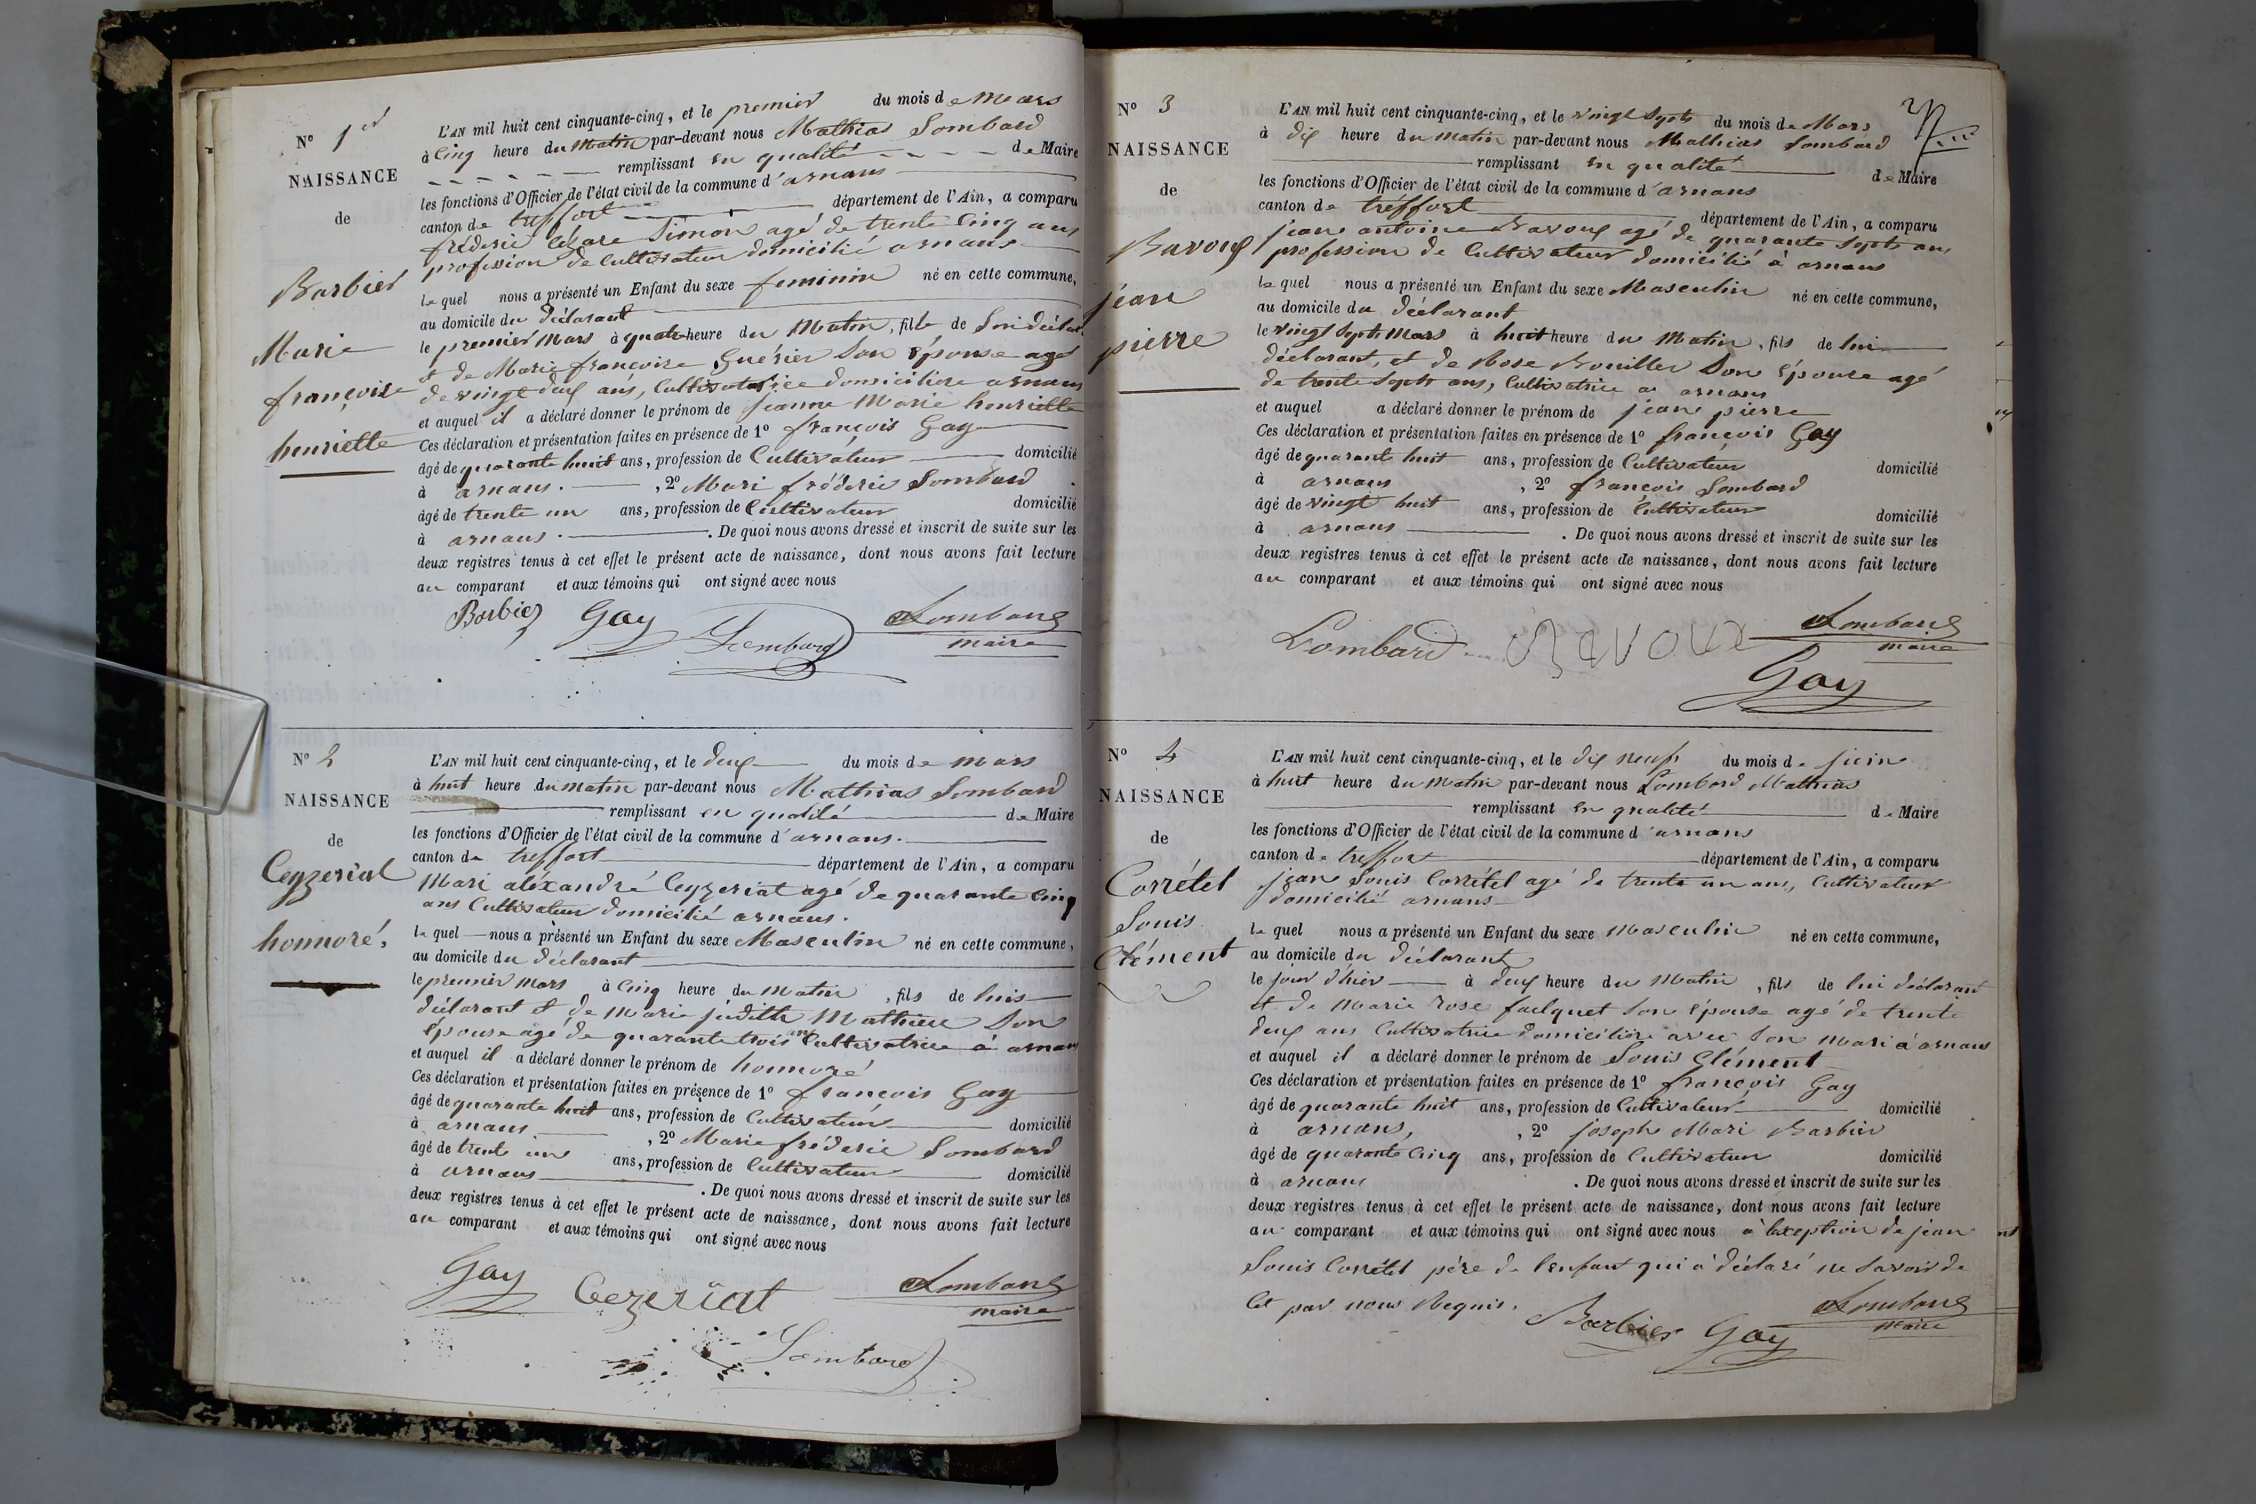 N° 1er
NAISSANCE
de
Barbier
Marie
françoise
henriette
L'AN mil huit cent cinquante-cinq, et le premier du mois de Mars
à Cinq heure du Matin par-devant nous Mathias Lombard
remplissant en qualité de Maire
les fonctions d'Officier de l'état civil de la commune d'arnans
canton de treffort département de l'Ain, a comparu
fréderic Cézare Simon agé de trente Cinq ans
profession de Cultivateur domicilié arnans
lequel nous a présenté un Enfant du sexe feminin né en cette commune,
au domicile du déclarant
le premier Mars à quatre heure du Matin, fille de
et de Marie françoise Guérier Son épouse agé
de vingt deux ans, Cultivatrice domicilière arnans
et auquel il a déclaré donner le prénom de jeanne Marie henriette
Ces déclaration et présentation faites en présence de 1° françois Gay
âgé de quarante huit ans, profession de Cultivateur domicilié
à arnans. , 2° Mari fréderic Lombard
âgé de trente un ans, profession de Cultivateur domicilié
à arnans. . De quoi nous avons dressé et inscrit de suite sur les
deux registres tenus à cet effet le présent acte de naissance, dont nous avons fait lecture
au comparant et aux témoins qui ont signé avec nous
Barbier Gay Lombard Lombard
maire
N° 2
NAISSANCE
de
Ceyzeriat
honnoré.
L'AN mil huit cent cinquante-cinq, et le deux du mois de mars
à huit heure du matin par-devant nous Mathias Lombard
remplissant en qualité de Maire
les fonctions d'Officier de l'état civil de la commune d'arnans.
canton de treffort département de l'Ain, a comparu
Mari aléxandré Ceyzeriat agé de quarante Cinq
ans Cultivateur domicilié arnans.
lequel nous a présenté un Enfant du sexe Masculin né en cette commune,
au domicile du déclarant
le premier mars à Cinq heure du matin, fils de luis
déclarant et de Marie judith Mathieu Son
épouse agé de quarante trois ans Cultivatrice à arnans
et auquel il a déclaré donner le prénom de honnoré
Ces déclaration et présentation faites en présence de 1° françois Gay
âgé de quarante huit ans, profession de Cultivateur domicilié
à arnans , 2° Marie fréderic Lombard
âgé de trente un ans, profession de Cultivateur domicilié
à arnans . De quoi nous avons dressé et inscrit de suite sur les
deux registres tenus à cet effet le présent acte de naissance, dont nous avons fait lecture
au comparant et aux témoins qui ont signé avec nous
Gay Cezeriat Lombard
maire
Lombard
N° 3
NAISSANCE
de
Bavoux
jean
pierre
L'AN mil huit cent cinquante-cinq, et le vingt Sept du mois de Mars
à dix heure du Matin par-devant nous Mathias Lombard
remplissant en qualité de Maire
les fonctions d'Officier de l'état civil de la commune d'arnans
canton de tréffort département de l'Ain, a comparu
jean antoine Bavoux agé de quarante Sept ans
profession de Cultivateur domicilié à arnans
lequel nous a présenté un Enfant du sexe Masculin né en cette commune,
au domicile du déclarant
le vingt Sept Mars à huit heure du Matin, fils de lui
déclarant, et de Rose Bouiller Son épouse agé
de trente Sept ans, Cultivatrice a arnans
et auquel a déclaré donner le prénom de jean pierre
Ces déclaration et présentation faites en présence de 1° françois Gay
âgé de quarante huit ans, profession de Cultivateur domicilié
à arnans , 2° françois Lombard
âgé de vingt huit ans, profession de Cultivateur domicilié
à arnans . De quoi nous avons dressé et inscrit de suite sur les
deux registres tenus à cet effet le présent acte de naissance, dont nous avons fait lecture
au comparant et aux témoins qui ont signé avec nous
Lombard Bavoux Lombard
maire
Gay
N° 4
NAISSANCE
de
Corrétel
Louis
Clément
L'AN mil huit cent cinquante-cinq, et le dix neuf du mois de juin
à huit heure du Matin par-devant nous Lombard Mathias
remplissant en qualité de Maire
les fonctions d'Officier de l'état civil de la commune d'arnans
canton de treffort département de l'Ain, a comparu
jean Louis Corrétel agé de trente un ans, Cultivateur
domicilié arnans
lequel nous a présenté un Enfant du sexe masculin né en cette commune,
au domicile du déclarant
le jour d'hier à deux heure du Matin, fils de lui déclarant
et de Marie rose falquet Son épouse agé de trente
deux ans Cultivatrice domicilière avec Son Mari à arnans
et auquel il a déclaré donner le prénom de Louis Clément
Ces déclaration et présentation faites en présence de 1° françois Gay
âgé de quarante huit ans, profession de Cultivateur domicilié
à arnans, , 2° joseph Mari Barbier
âgé de quarante Cinq ans, profession de Cultivateur domicilié
à arnans . De quoi nous avons dressé et inscrit de suite sur les
deux registres tenus à cet effet le présent acte de naissance, dont nous avons fait lecture
au comparant et aux témoins qui ont signé avec nous à l'exeption de jean
Louis Corrétel pére de l'enfant qui à déclaré ne Savoir de
Cet par nous Requis.
Barbier Gay Lombard
maire